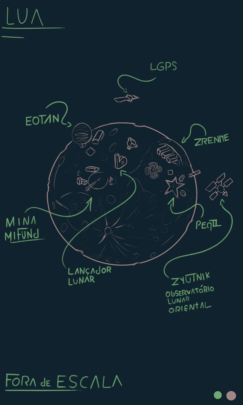 LUA
LGPS
EOTAN
ZRENITE
MINA
MIFUND
PEQII
LANÇADOR
LUNAR
ZYUTNIK
OBSERVATÓRIO
LUNAR
ORIENTAL
FORA DE ESCALA